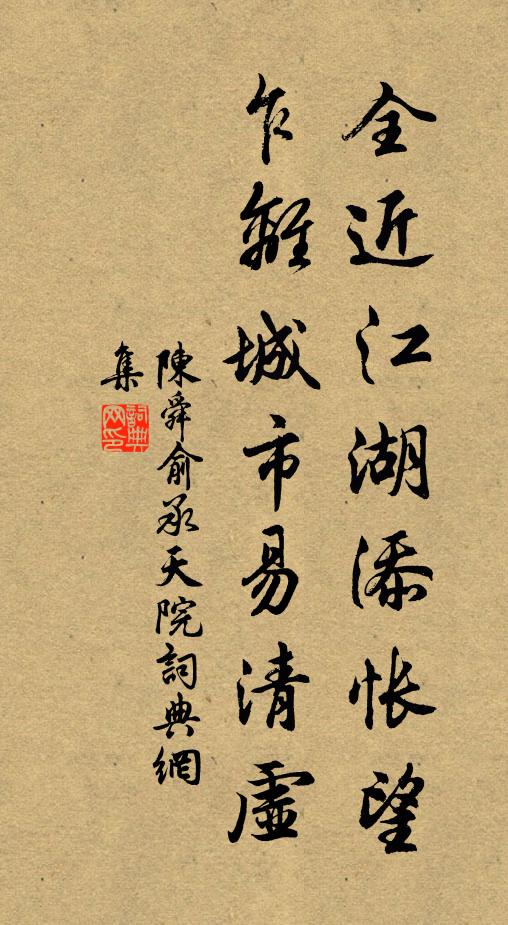 全近江湖添悵望
乍離城市易清虛
陳舜俞承天院詞典網
集
詞典
网印